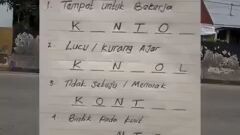 1. Tempat untuk Bekerja
K _ N T O _
2. Lucu / Kurang Ajar
K _ N _ O L
3. Tidak Setuju / Menolak
K O N T _ _ _
4. Bintik pada Kulit
N T